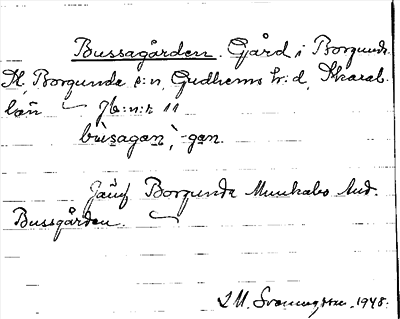 Bussagården. Gård i Borgunda
Borgunda s:n, Gudhems h:d, Skarab.
län Jb:n:r 11
bùsagan, -gan.
Jämf Borgunda Munkabo And.
Bussgården
1948.